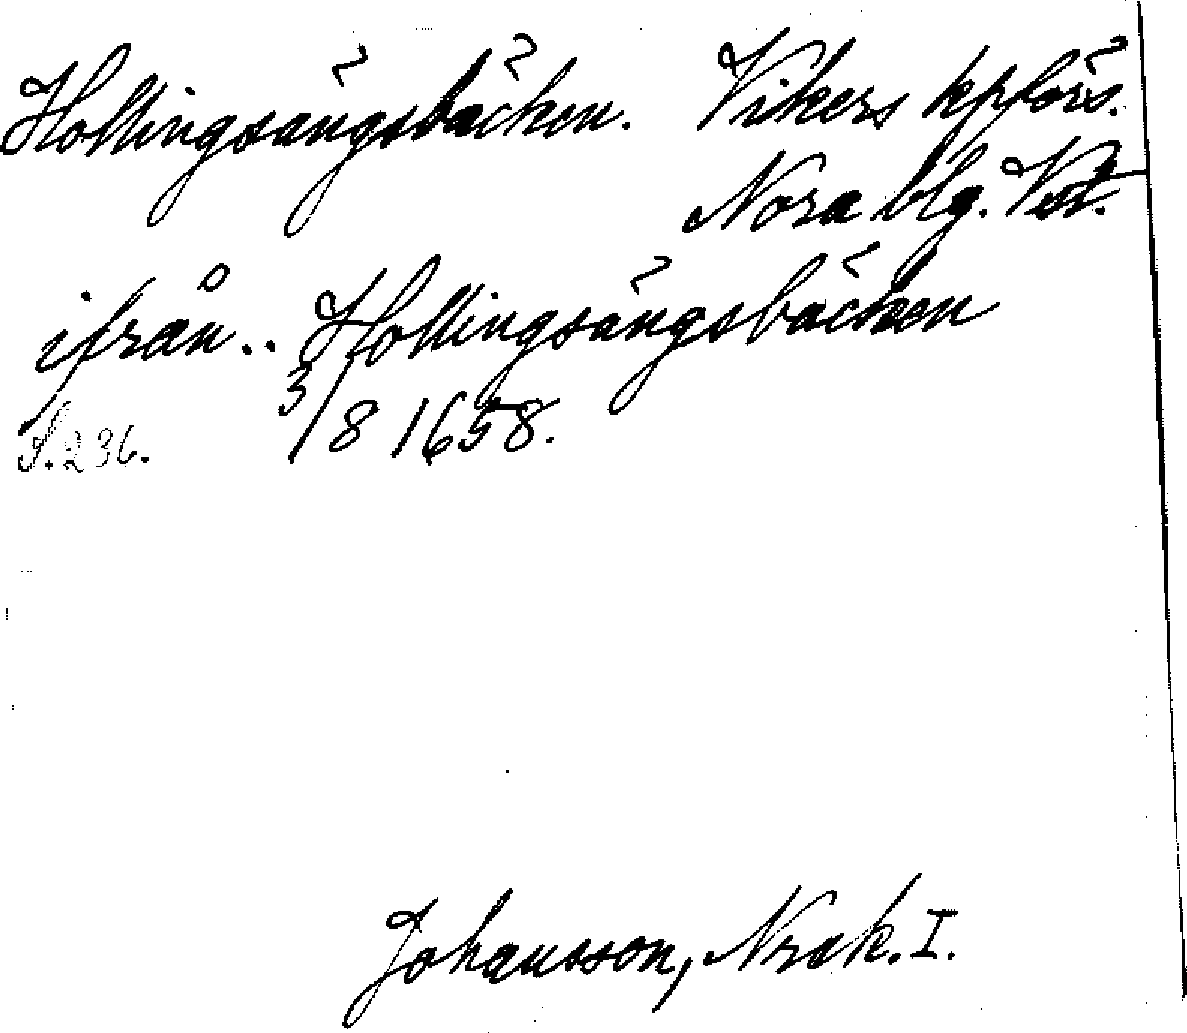 Hollingsängsbäcken. Vikers kpförs.
Nora blg. Vst.
ifrån.. Hollingsängsbäcken
S. 236. 3/8 1658.
Johansson, Nrak. I.